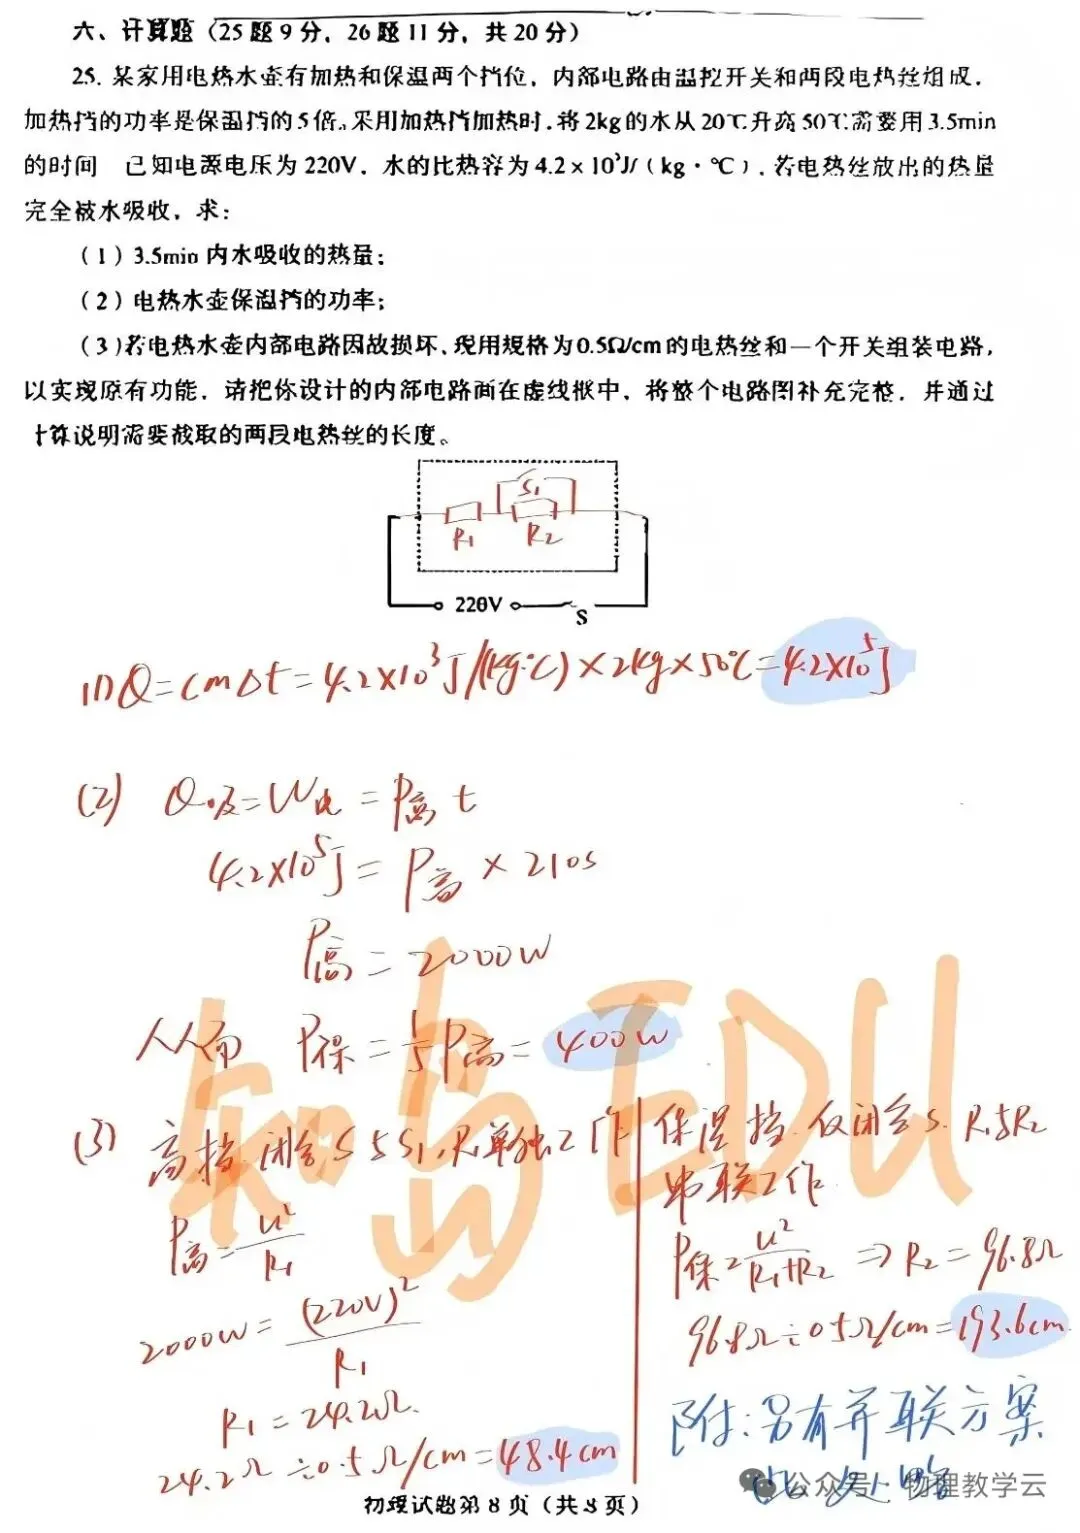 六、计算题（25题9分，26题11分，共20分）
25. 某家用电热水壶有加热和保温两个挡位，内部电路由温控开关和两段电热丝组成.
加热挡的功率是保温挡的5倍。采用加热挡加热时.将2kg的水从20℃升高50℃需要用3.5min
的时间 已知电源电压为220V. 水的比热容为4.2×10³J/（kg·℃）. 若电热丝放出的热量
完全被水吸收，求：
（1）3.5min内水吸收的热量；
（2）电热水壶保温挡的功率；
（3)若电热水壶内部电路因故损坏、现用规格为0.5Ω/cm的电热丝和一个开关组装电路，
以实现原有功能. 请把你设计的内部电路画在虚线框中，将整个电路图补充完整. 并通过
计算说明需要截取的两段电热丝的长度。
S₁
R₁ R₂
220V S
(1) Q=cmΔt=4.2×10³J/(kg·℃)×2kg×50℃=4.2×10⁵J
(2) Q吸=W电=P高t
4.2×10⁵J=P高×210s
P高=2000W
从而 P保=1/5P高=400W
(3) 高挡.闭合S与S₁,R₁单独工作
P高=U²/R₁
2000W=(220V)²/R₁
R₁=24.2Ω.
24.2Ω÷0.5Ω/cm=48.4cm
保温挡.仅闭合S.R₁与R₂
串联工作
P保=U²/R₁+R₂⇒R₂=96.8Ω
96.8Ω÷0.5Ω/cm=193.6cm
附:另有并联方案
公众号·物理教学云
物理试题第8页（共8页）
知鸟EDU